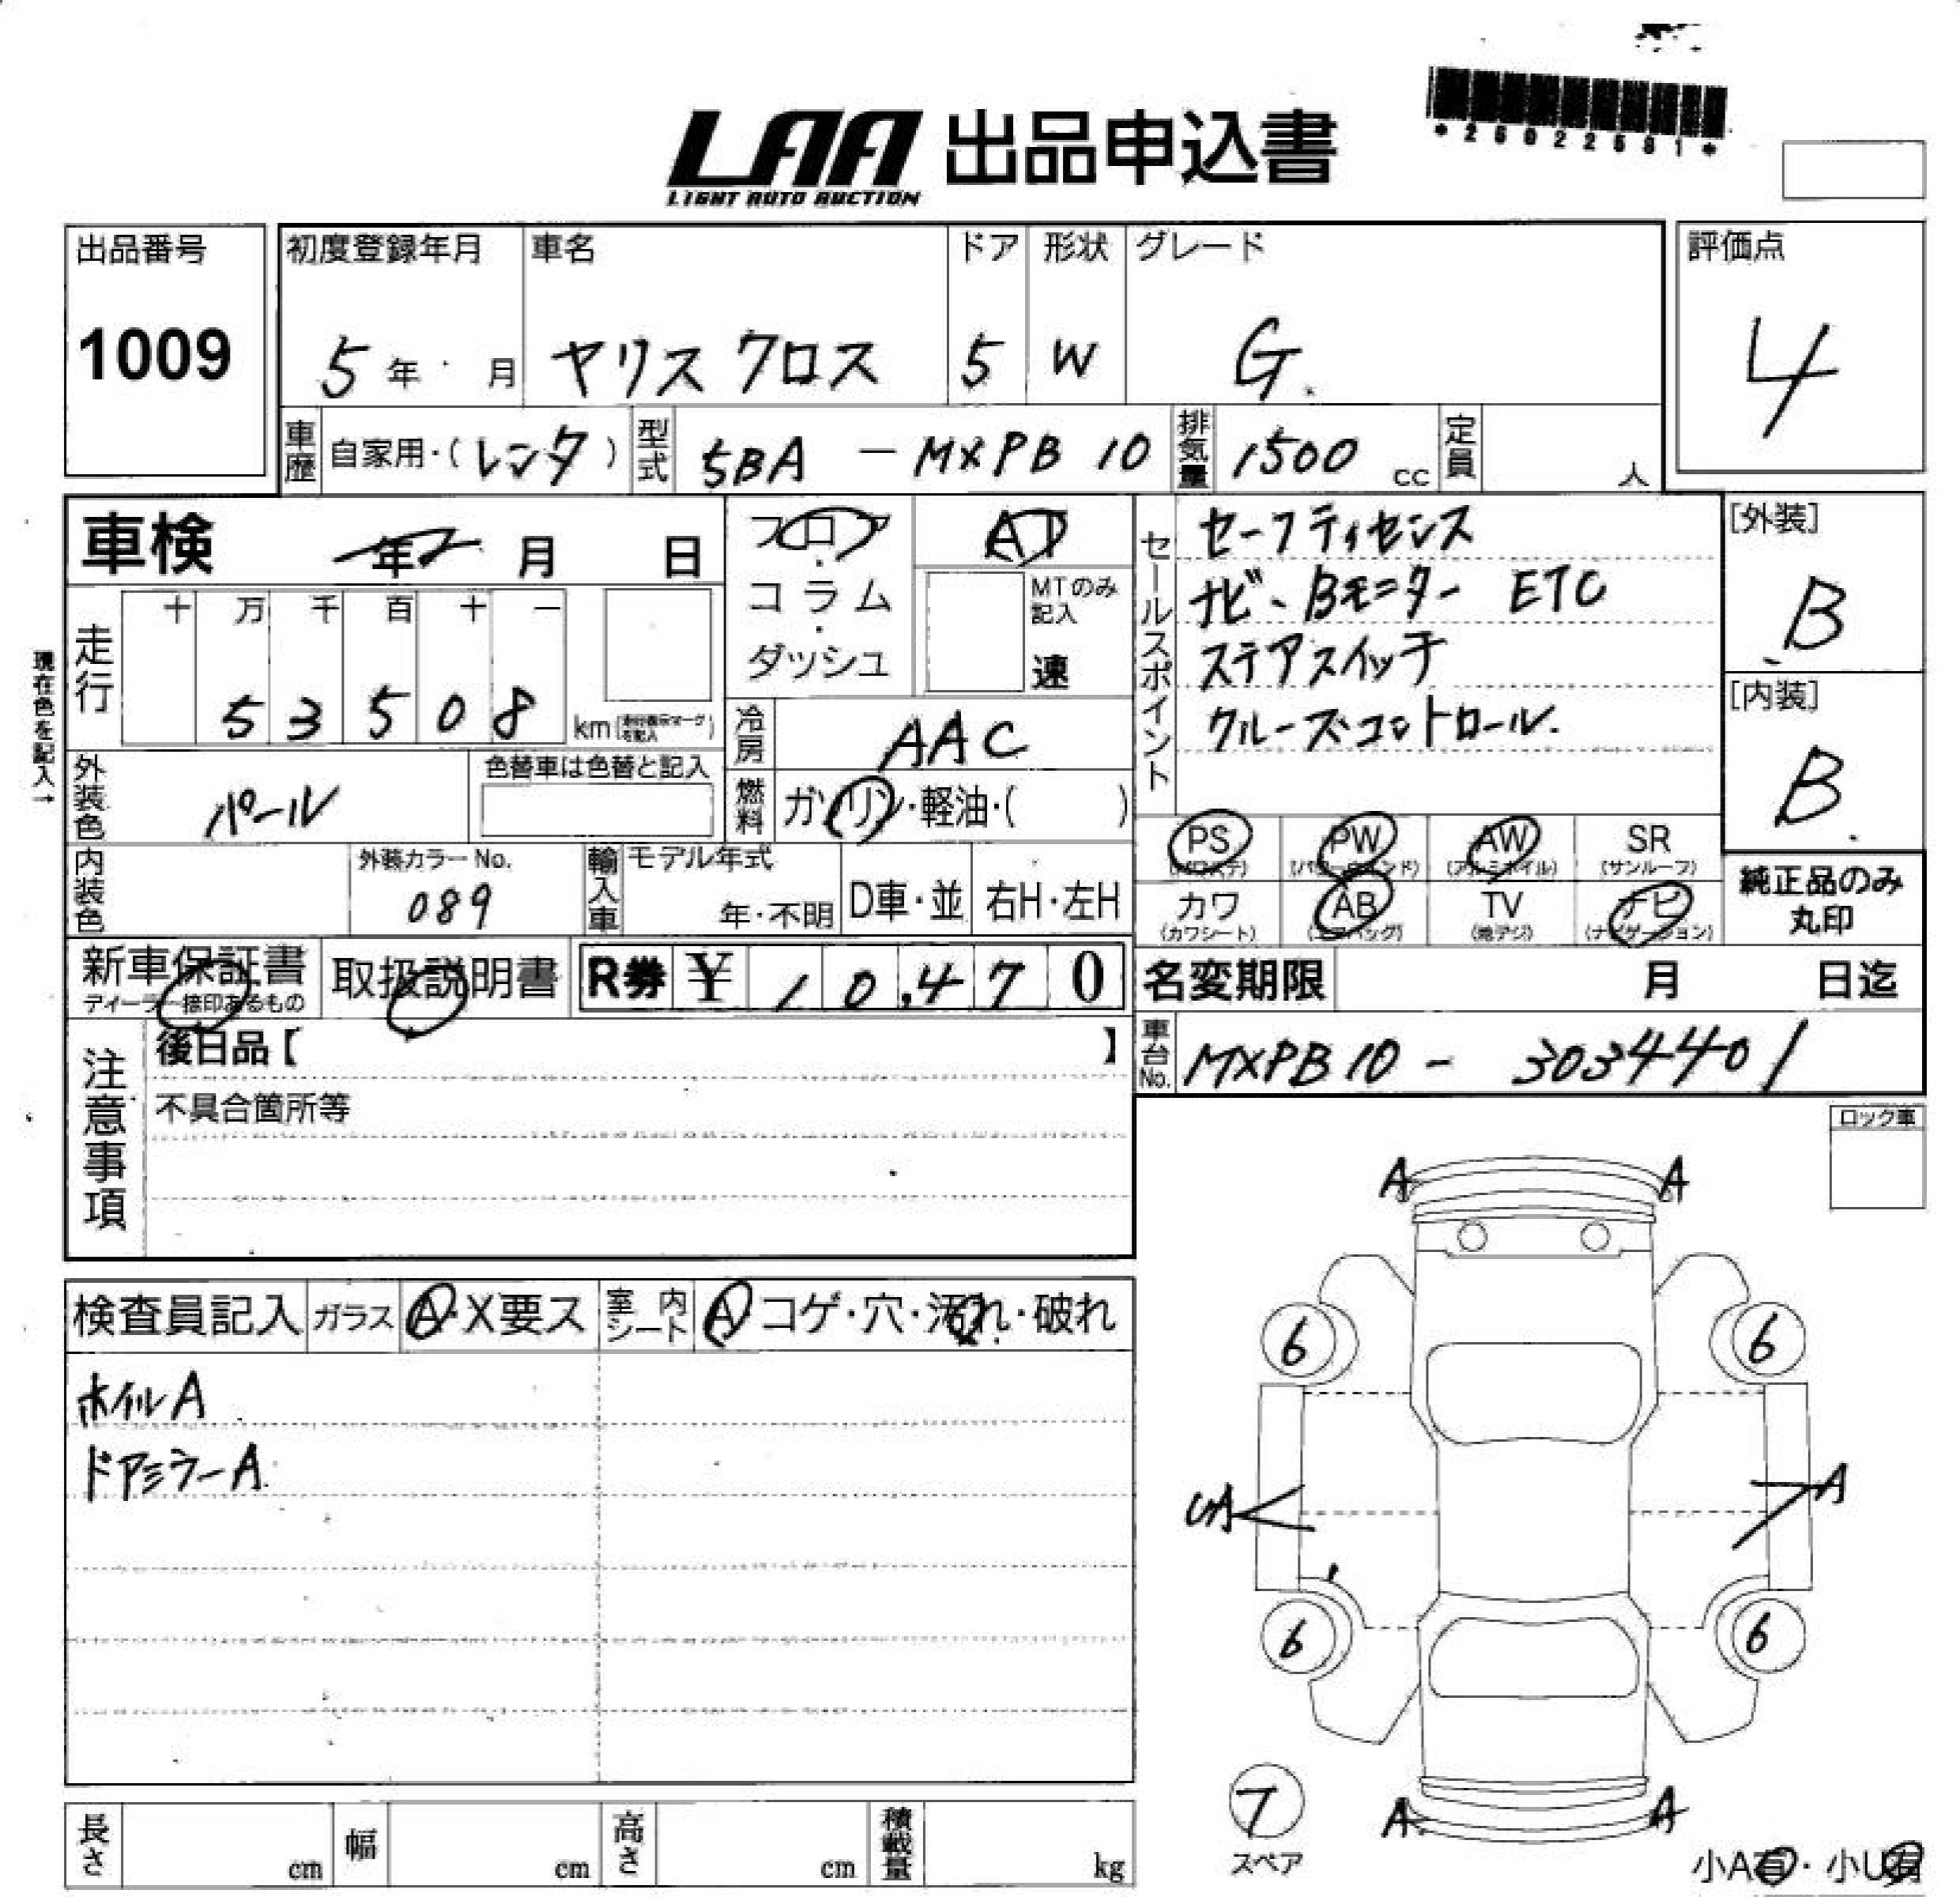 *25022581*
LAA 出品申込書
LIGHT AUTO AUCTION
出品番号 初度登録年月 車名 ドア 形状 グレード 評価点
1009 5年 月 ヤリス クロス 5 W G 4
車歴 自家用・(レンタ) 型式 5BA - MXPB10 排気量 1500 cc 定員 人
車検 年 月 日
フロア・コラム・ダッシュ
AT
MTのみ記入
速
セールスポイント
セーフティセンス
ナビ、Bモニター ETC
ステアスイッチ
クルーズコントロール.
[外装]
B
[内装]
B
現在色を記入→
走行 十 万 千 百 十 一
5 3 5 0 8 km
冷房 AAC
外装色 パール 色替車は色替と記入
燃料 ガソリン・軽油・( )
PS PW AW SR
(パワステ) (パワーウィンド) (アルミホイル) (サンルーフ)
カワ AB TV ナビ
(カワシート) (エアバッグ) (地デジ) (ナビゲーション)
純正品のみ
丸印
内装色 外装カラーNo. 089 輸入車 モデル年式 年・不明 D車・並 右H・左H
新車保証書 取扱説明書 R券 ¥ 10,470 名変期限 月 日迄
ディーラー捺印あるもの
車台No. MXPB10 - 3034401
注意事項
後日品【 】
不具合箇所等
ロック車
検査員記入 ガラス A・X要ス 室内シート A・コゲ・穴・汚れ・破れ
ホイルA
ドアミラーA
A A
6 6
UA A
6 6
7
スペア
A A
小A有・小U有
長さ cm 幅 cm 高さ cm 積載量 kg